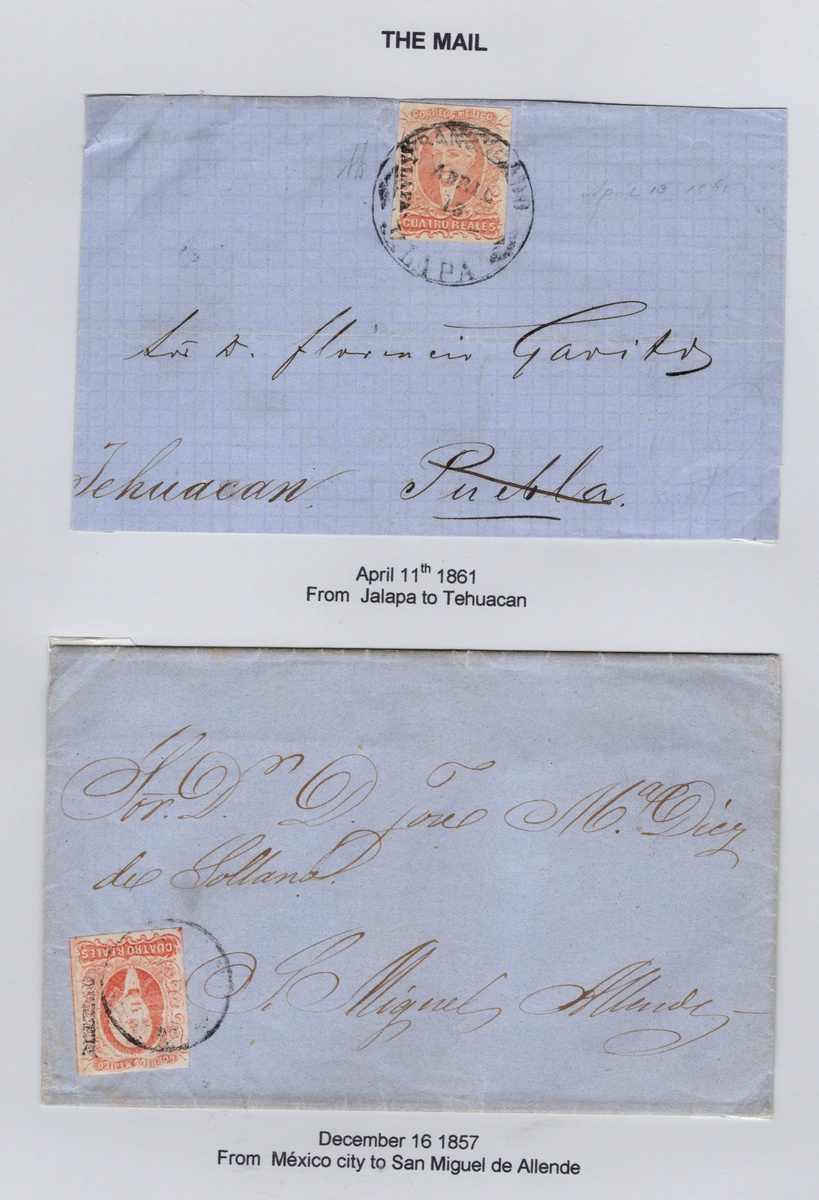 THE MAIL
CORREOS MEJICO
FRANQUEADO
XALAPA
ABRIL
CUATRO REALES
JALAPA
Sōr D. Florencio Gavito
Tehuacan. Puebla.
April 11th 1861
From Jalapa to Tehuacan
Sōr. Dn D. José Ma. Diez
de Sollano.
CUATRO REALES
S. Miguel Allende
CORREOS MEJICO
December 16 1857
From México city to San Miguel de Allende